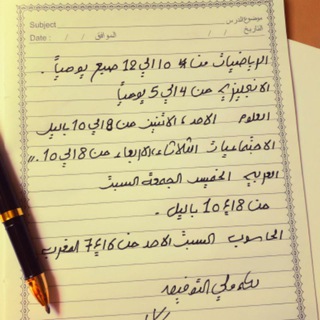 Subject موضوع الدرس
Date : / / الموافق / / التاريخ
الرياضيات من 10 الي 12 صبح يومياً .
الانجليزية من 4 الي 5 يومياً
العلوم الاحد، الاثنين من 8 الي 10 بليل
الاجتماعيات الثلاثاء، الاربعاء من 8 الي 10 "
العربية الخميس الجمعة السبت
من 8 ع 10 بليل .
الحاسوب السبت الاحد من 6 ع 7 المغرب
ولي التوفيق